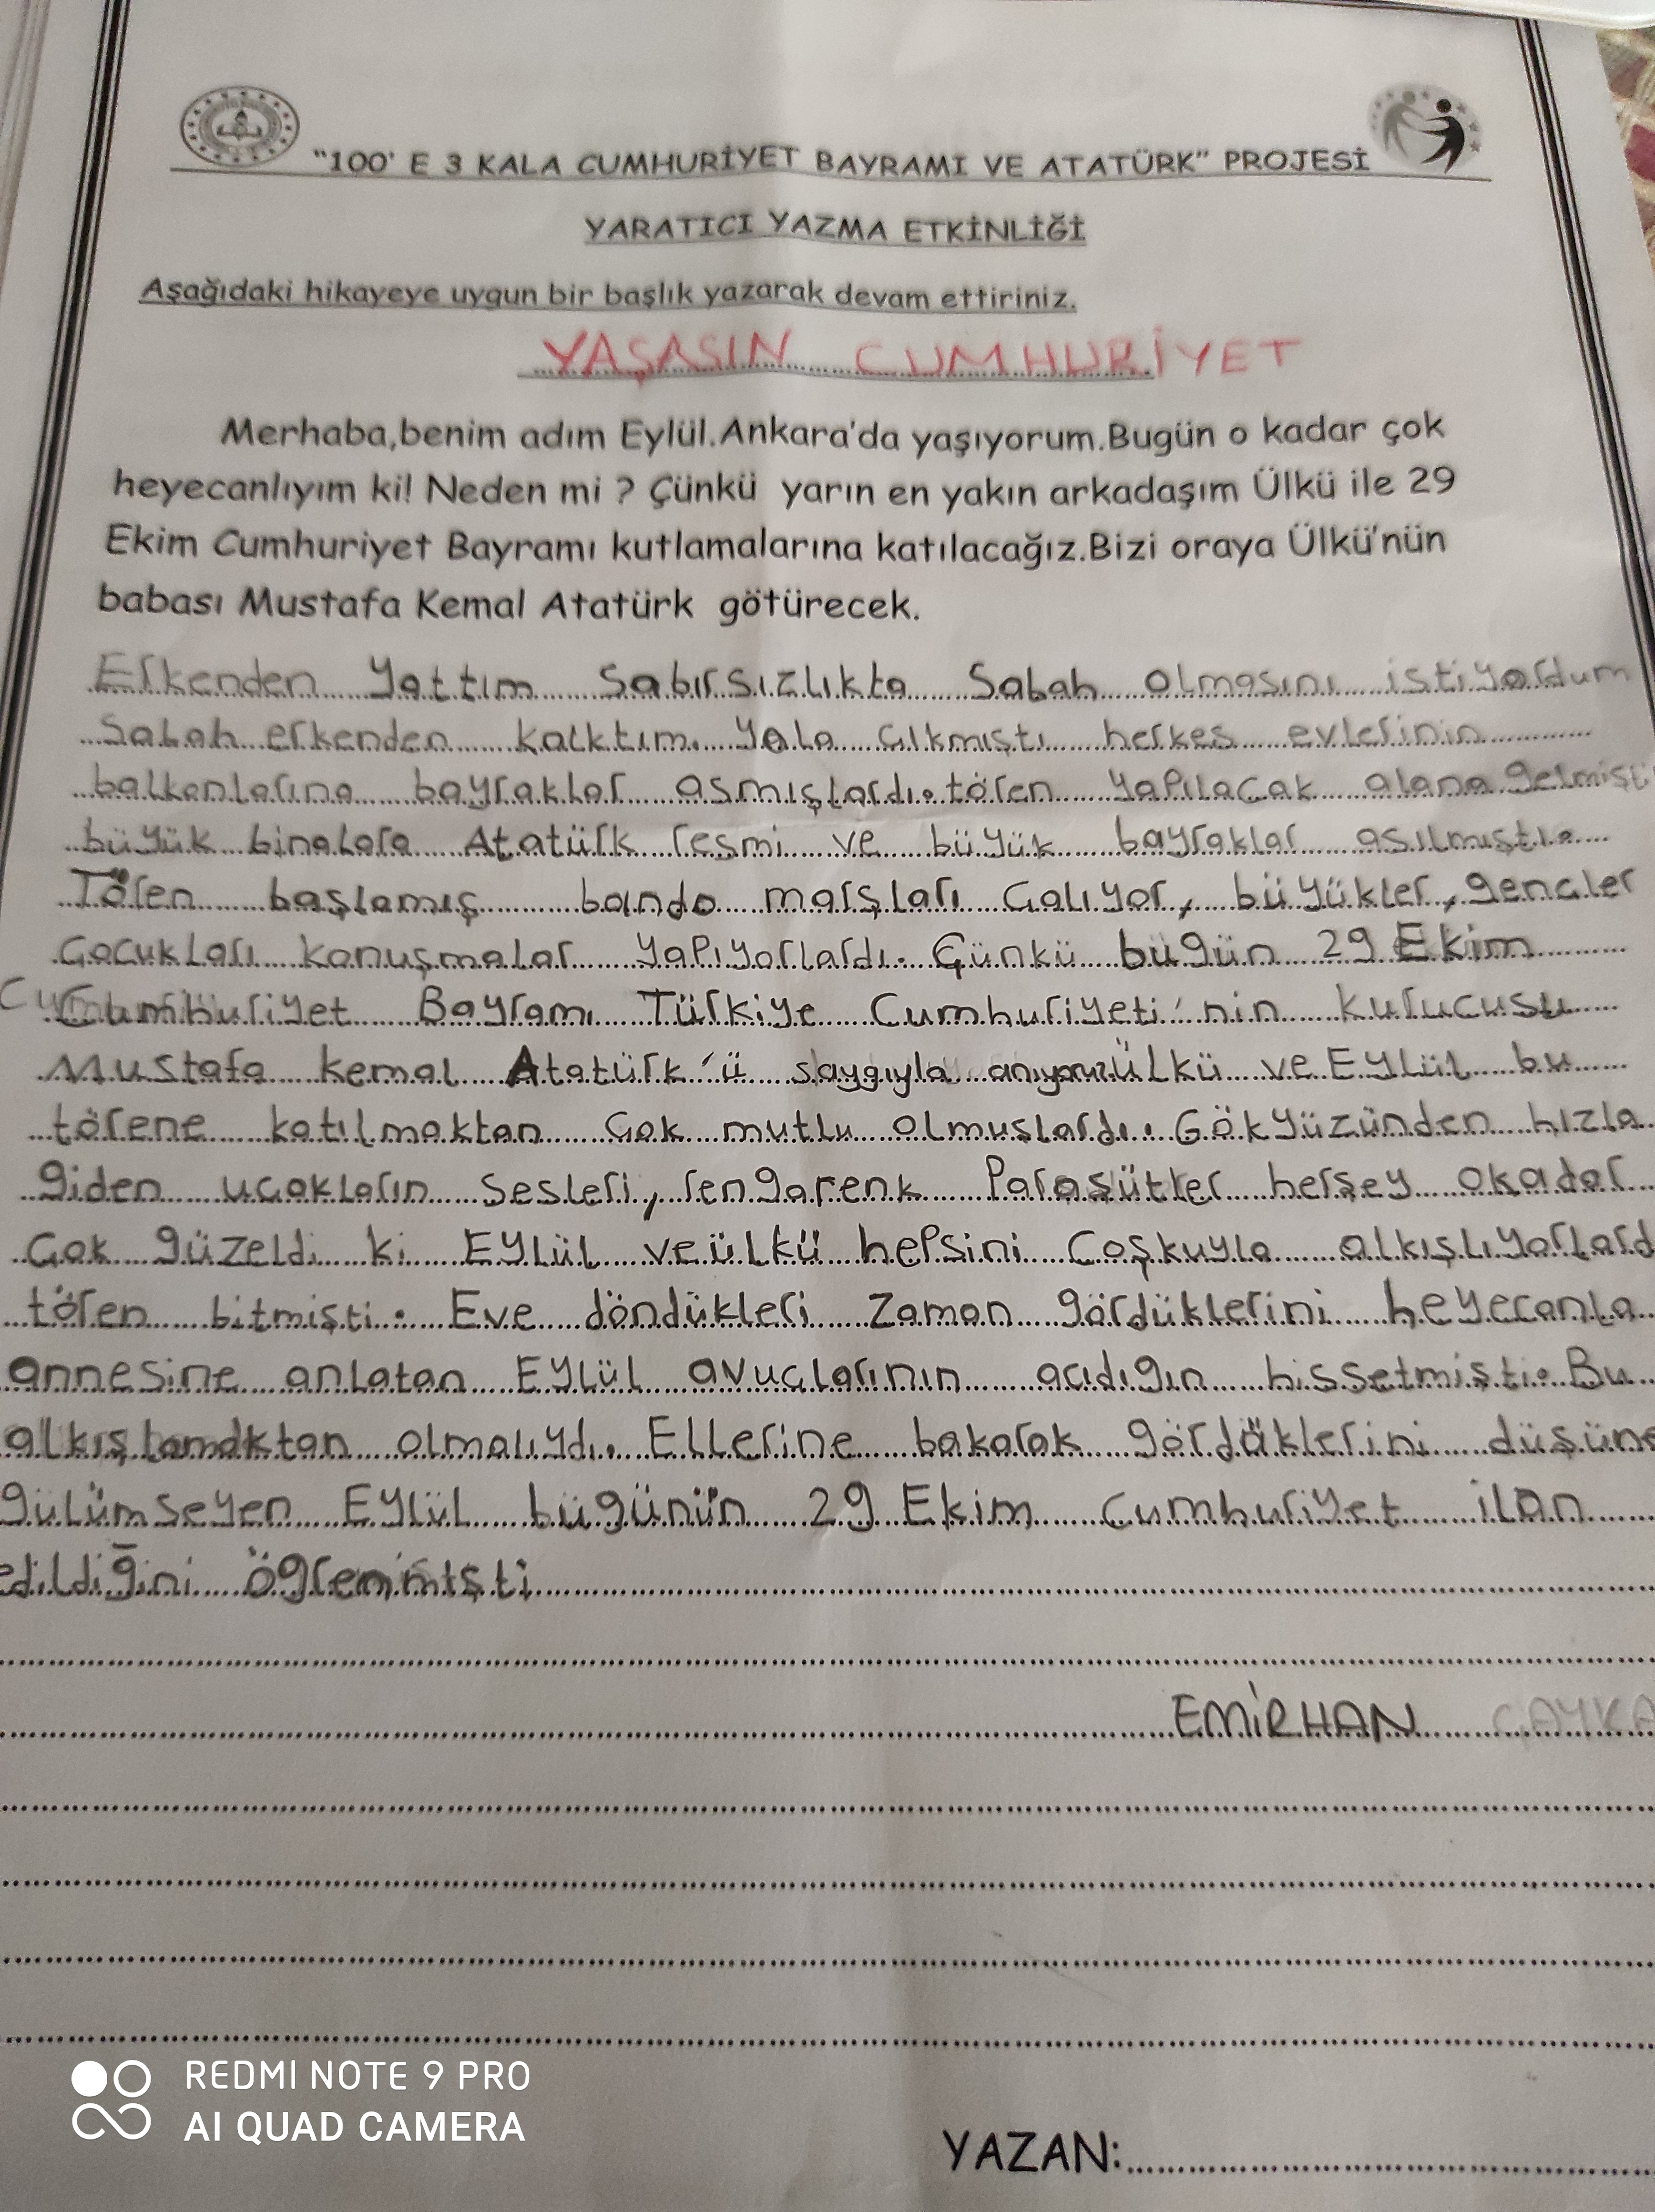 "100' E 3 KALA CUMHURİYET BAYRAMI VE ATATÜRK" PROJESİ
YARATICI YAZMA ETKİNLİĞİ
Aşağıdaki hikayeye uygun bir başlık yazarak devam ettiriniz.
YAŞASIN CUMHURİYET
Merhaba,benim adım Eylül.Ankara'da yaşıyorum.Bugün o kadar çok
heyecanlıyım ki! Neden mi ? Çünkü yarın en yakın arkadaşım Ülkü ile 29
Ekim Cumhuriyet Bayramı kutlamalarına katılacağız.Bizi oraya Ülkü'nün
babası Mustafa Kemal Atatürk götürecek.
Erkenden Yattım Sabırsızlıkta Sabah olmasını istiyordum
Sabah erkenden kalktım. Yola çıkmıştı herkes evlerinin
balkonlarına bayraklar asmışlardı. tören Yapılacak alana gelmişti
büyük binalara Atatürk resmi ve büyük bayraklar asılmıştı.
Tören başlamış bando marşları Çalıyor, büyükler, gençler
Çocukları konuşmalar Yapıyorlardı. Çünkü bügün 29 Ekim
Cumhuriyet Bayramı Türkiye Cumhuriyeti'nin kurucusu
Mustafa kemal Atatürk'ü saygıyla anıyoruz Ülkü ve Eylül bu
törene katılmaktan Çok mutlu olmuşlardı. Gökyüzünden hızla
giden uçakların Sesleri, rengarenk Paraşütler herşey okadar
Çok güzeldi ki Eylül ve ülkü hepsini Coşkuyla alkışlıyorlard
tören bitmişti. Eve döndükleri Zaman gördüklerini heyecanla
annesine anlatan Eylül avuçlarının acıdığın hissetmişti. Bu
alkışlamaktan olmalıydı. Ellerine bakarak gördüklerini düşüne
gülümseyen Eylül bügünün 29 Ekim Cumhuriyet ilan
edildiğini öğrenmişti
EMİRHAN ÇAYKA
YAZAN:
REDMI NOTE 9 PRO
AI QUAD CAMERA